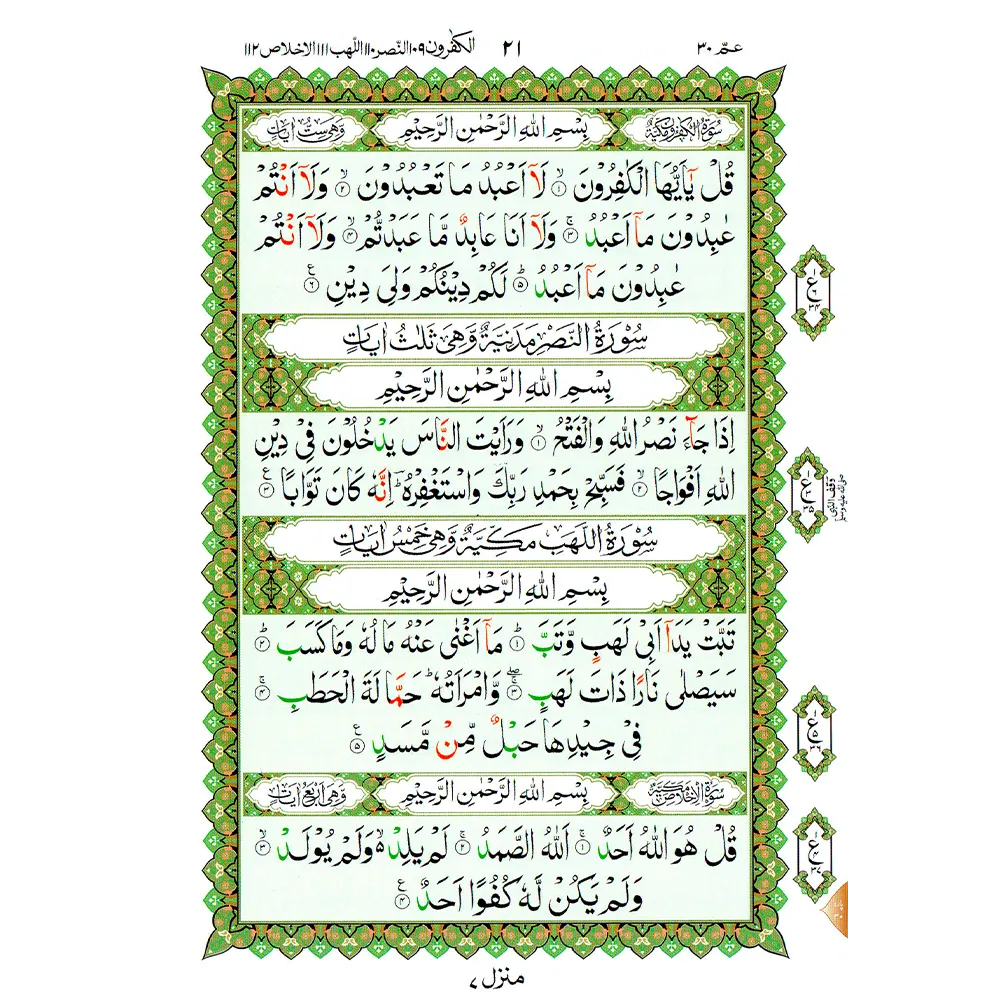 عمّ ٣٠
٢١
الكٰفرون ١٠٩ النّصر ١١٠ اللّهب ١١١ الاخلاص ١١٢
سُوْرَةُ الْكٰفِرُوْنَ مَكِّيَّةٌ بِسْمِ اللهِ الرَّحْمٰنِ الرَّحِيْمِ وَّهِىَ سِتُّ اٰيَاتٍ
قُلْ يٰۤاَيُّهَا الْكٰفِرُوْنَ ۙ‏﴿۱﴾ لَاۤ اَعْبُدُ مَا تَعْبُدُوْنَ ۙ‏﴿۲﴾ وَلَاۤ اَنْتُمْ
عٰبِدُوْنَ مَاۤ اَعْبُدُ ۚ‏﴿۳﴾ وَلَاۤ اَنَا عَابِدٌ مَّا عَبَدْتُّمْ ۙ‏﴿۴﴾ وَلَاۤ اَنْتُمْ
عٰبِدُوْنَ مَاۤ اَعْبُدُ ؕ‏﴿۵﴾ لَكُمْ دِيْنُكُمْ وَلِىَ دِيْنِ ‏﴿۶﴾ ع
سُوْرَةُ النَّصْرِ مَدَنِيَّةٌ وَّهِىَ ثَلٰثُ اٰيَاتٍ
بِسْمِ اللهِ الرَّحْمٰنِ الرَّحِيْمِ
اِذَا جَآءَ نَصْرُ اللهِ وَالْفَتْحُ ۙ‏﴿۱﴾ وَرَاَيْتَ النَّاسَ يَدْخُلُوْنَ فِىْ دِيْنِ
اللهِ اَفْوَاجًا ۙ‏﴿۲﴾ فَسَبِّحْ بِحَمْدِ رَبِّكَ وَاسْتَغْفِرْهُ ؕؔ اِنَّهٗ كَانَ تَوَّابًا ‏﴿۳﴾ ع
سُوْرَةُ اللَّهَبِ مَكِّيَّةٌ وَّهِىَ خَمْسُ اٰيَاتٍ
بِسْمِ اللهِ الرَّحْمٰنِ الرَّحِيْمِ
تَبَّتْ يَدَاۤ اَبِىْ لَهَبٍ وَّتَبَّ ؕ‏﴿۱﴾ مَاۤ اَغْنٰى عَنْهُ مَالُهٗ وَمَا كَسَبَ ؕ‏﴿۲﴾
سَيَصْلٰى نَارًا ذَاتَ لَهَبٍ ۚۖ‏﴿۳﴾ وَّامْرَاَتُهٗ ؕ حَمَّالَةَ الْحَطَبِ ۚ‏﴿۴﴾
فِىْ جِيْدِهَا حَبْلٌ مِّنْ مَّسَدٍ ‏﴿۵﴾ ع
سُوْرَةُ الْاِخْلَاصِ مَكِّيَّةٌ بِسْمِ اللهِ الرَّحْمٰنِ الرَّحِيْمِ وَّهِىَ اَرْبَعُ اٰيَاتٍ
قُلْ هُوَ اللهُ اَحَدٌ ۚ‏﴿۱﴾ اَللهُ الصَّمَدُ ۚ‏﴿۲﴾ لَمْ يَلِدْ ۙ۬ وَلَمْ يُوْلَدْ ۙ‏﴿۳﴾
وَلَمْ يَكُنْ لَّهٗ كُفُوًا اَحَدٌ ‏﴿۴﴾ ع
وقف النبى صلى الله عليه وسلم
منزل ٧